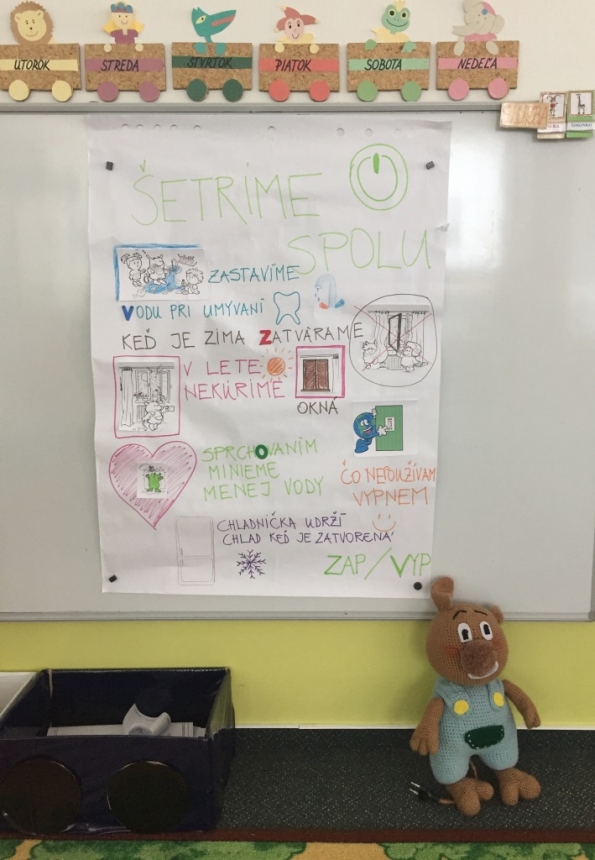 UTOROK STREDA ŠTVRTOK PIATOK SOBOTA NEDEĽA
ŠETRIME
SPOLU
ZASTAVÍME
VODU PRI UMÝVANÍ
KEĎ JE ZIMA ZATVÁRAME
V LETE
NEKÚRIME
OKNÁ
SPRCHOVANÍM
MINIEME
MENEJ VODY
ČO NEPOUŽÍVAM
VYPNEM
CHLADNIČKA UDRŽÍ
CHLAD KEĎ JE ZATVORENÁ
ZAP/VYP